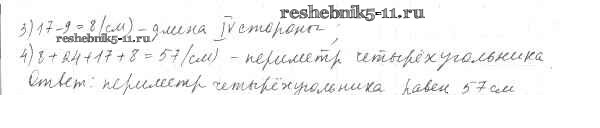 reshebnik5-11.ru
3) 17-9=8 (см) - длина IV стороны;
reshebnik5-11.ru
4) 8+24+17+8=57 (см) - периметр четырёхугольника
Ответ: периметр четырёхугольника равен 57 см